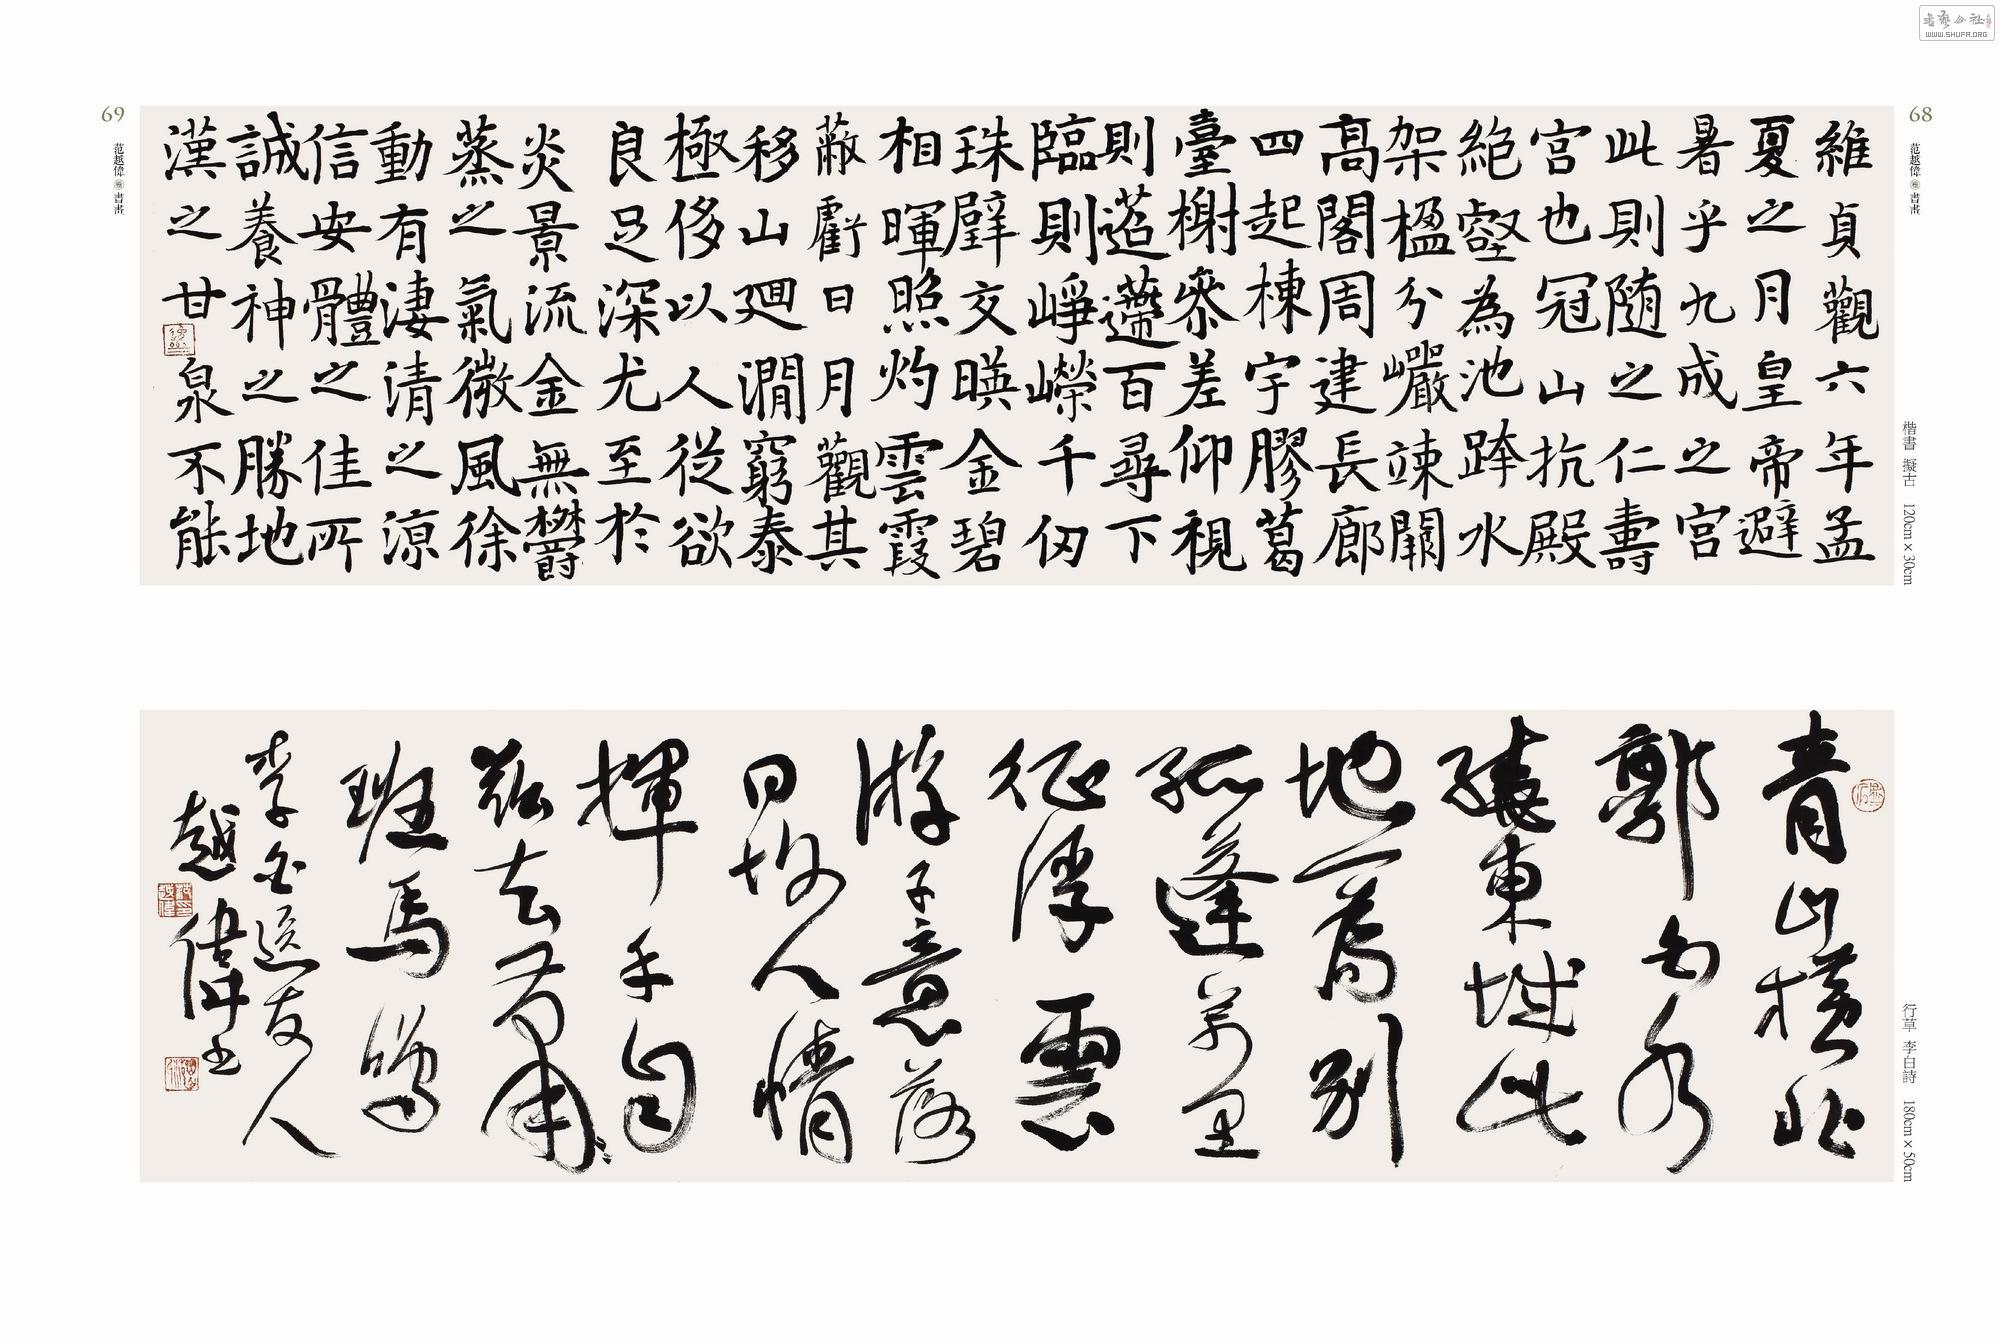 书艺公社
WWW.SHUFA.ORG
68
范越偉 書畫
維貞觀六年孟
夏之月皇帝避
暑乎九成之宮
此則随之仁壽
宮也冠山抗殿
絶壑為池跨水
架楹分巖竦闕
高閣周建長廊
四起棟宇膠葛
臺榭叅差仰視
則迢遰百尋下
臨則崢嶸千仞
珠璧交暎金碧
相暉照灼雲霞
蔽虧日月觀其
移山廻澗窮泰
極侈以人從欲
良足深尤至於
炎景流金無欝
蒸之氣微風徐
動有淒清之涼
信安體之佳所
誠養神之勝地
漢之甘泉不能
楷書 擬古 120cm×30cm
69
范越偉 書畫
青山橫北
郭白水
繞東城此
地一為別
孤蓬萬里
征浮雲
游子意落
日故人情
揮手自
茲去蕭〻
班馬鳴
李白送友人
越偉書
行草 李白詩 180cm×50cm